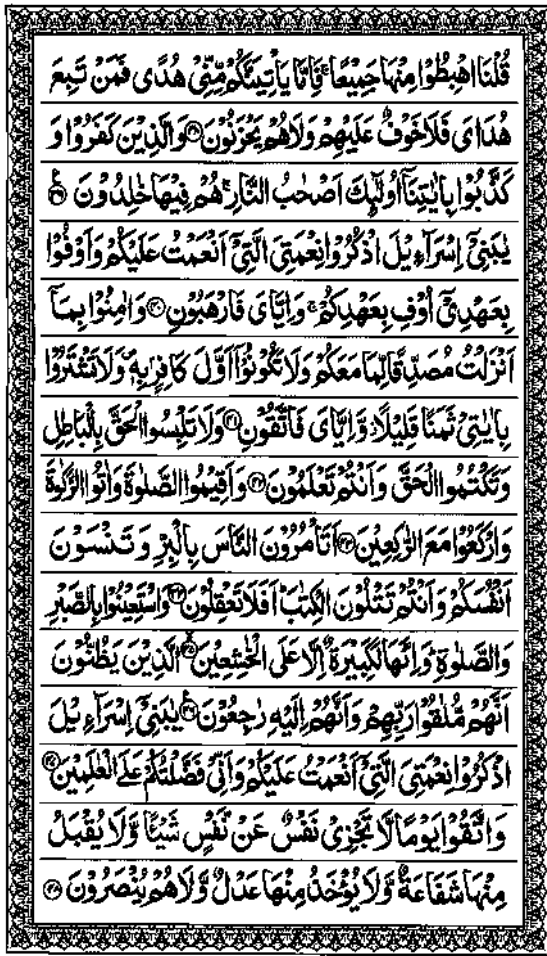 قُلْنَا اهْبِطُوْا مِنْهَا جَمِيْعًا ۚ فَاِمَّا يَاْتِيَنَّكُمْ مِّنِّيْ هُدًى فَمَنْ تَبِعَ
هُدَايَ فَلَا خَوْفٌ عَلَيْهِمْ وَلَا هُمْ يَحْزَنُوْنَ ۝۳۸ وَالَّذِيْنَ كَفَرُوْا وَ
كَذَّبُوْا بِاٰيٰتِنَاۤ اُولٰٓئِكَ اَصْحٰبُ النَّارِ ۚ هُمْ فِيْهَا خٰلِدُوْنَ ۝۳۹
يٰبَنِيْۤ اِسْرَآءِيْلَ اذْكُرُوْا نِعْمَتِيَ الَّتِيْۤ اَنْعَمْتُ عَلَيْكُمْ وَاَوْفُوْا
بِعَهْدِيْۤ اُوْفِ بِعَهْدِكُمْ ۚ وَاِيَّايَ فَارْهَبُوْنِ ۝۴۰ وَاٰمِنُوْا بِمَاۤ
اَنْزَلْتُ مُصَدِّقًا لِّمَا مَعَكُمْ وَلَا تَكُوْنُوْۤا اَوَّلَ كَافِرٍۭ بِهٖ ۪ وَلَا تَشْتَرُوْا
بِاٰيٰتِيْ ثَمَنًا قَلِيْلًا ؗ وَّاِيَّايَ فَاتَّقُوْنِ ۝۴۱ وَلَا تَلْبِسُوا الْحَقَّ بِالْبَاطِلِ
وَتَكْتُمُوا الْحَقَّ وَاَنْتُمْ تَعْلَمُوْنَ ۝۴۲ وَاَقِيْمُوا الصَّلٰوةَ وَاٰتُوا الزَّكٰوةَ
وَارْكَعُوْا مَعَ الرّٰكِعِيْنَ ۝۴۳ اَتَاْمُرُوْنَ النَّاسَ بِالْبِرِّ وَتَنْسَوْنَ
اَنْفُسَكُمْ وَاَنْتُمْ تَتْلُوْنَ الْكِتٰبَ ؕ اَفَلَا تَعْقِلُوْنَ ۝۴۴ وَاسْتَعِيْنُوْا بِالصَّبْرِ
وَالصَّلٰوةِ ؕ وَاِنَّهَا لَكَبِيْرَةٌ اِلَّا عَلَى الْخٰشِعِيْنَ ۝۴۵ الَّذِيْنَ يَظُنُّوْنَ
اَنَّهُمْ مُّلٰقُوْا رَبِّهِمْ وَاَنَّهُمْ اِلَيْهِ رٰجِعُوْنَ ۝۴۶ يٰبَنِيْۤ اِسْرَآءِيْلَ
اذْكُرُوْا نِعْمَتِيَ الَّتِيْۤ اَنْعَمْتُ عَلَيْكُمْ وَاَنِّيْ فَضَّلْتُكُمْ عَلَى الْعٰلَمِيْنَ ۝۴۷
وَاتَّقُوْا يَوْمًا لَّا تَجْزِيْ نَفْسٌ عَنْ نَّفْسٍ شَيْـًٔا وَّلَا يُقْبَلُ
مِنْهَا شَفَاعَةٌ وَّلَا يُؤْخَذُ مِنْهَا عَدْلٌ وَّلَا هُمْ يُنْصَرُوْنَ ۝۴۸